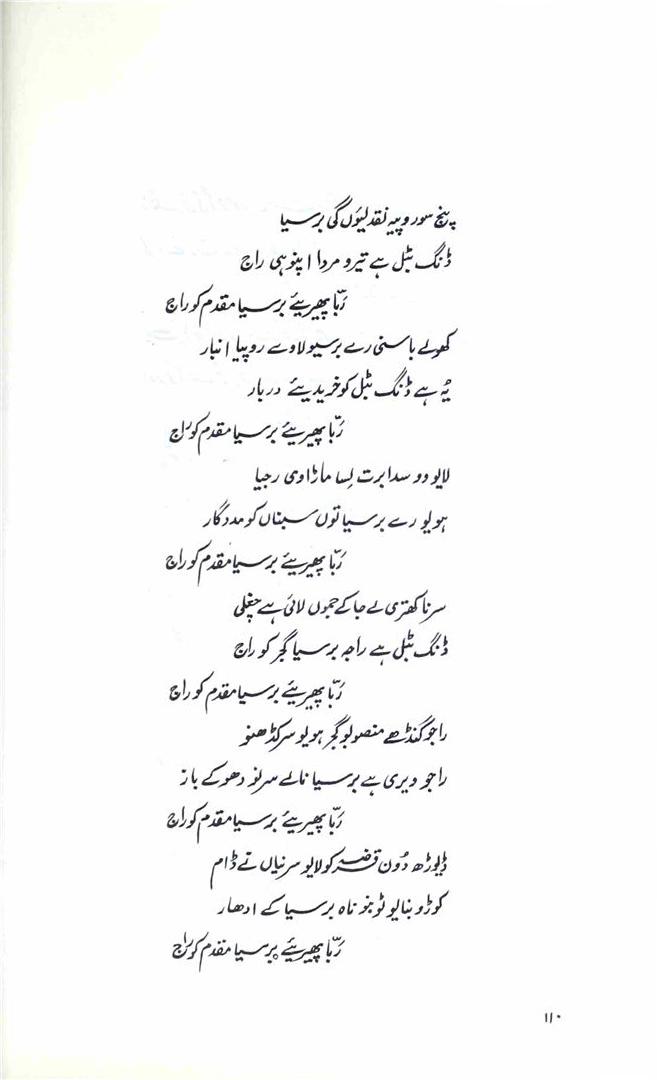 پنچ سو روپیہ نقد لیئوں گی برسیا
ڈنگ ٹبل ہے تیرو مردا اپنو ہی راج
ربّا پھیریئے برسیا مقدم کو راج
کھولے باسنی رے برسیو لاوے روپیا انبار
یُہ ہے ڈنگ ٹبل کو خریدیئے دربار
ربّا پھیریئے برسیا مقدم کو راج
لایو دو سدابرت لِسا ماڑاوی رجیا
ہولیو رے برسیا توں سبناں کو مددگار
ربّا پھیریئے برسیا مقدم کو راج
سرنا کھتری لے جاکے جموں لائی ہے چغلی
ڈنگ ٹبل ہے راجہ برسیا گجر کو راج
ربّا پھیریئے برسیا مقدم کو راج
راجو گنڈھے منصولو گجر ہولیو سرکڈھنو
راجو ویری ہے برسیا نالے سرنو دھوکے باز
ربّا پھیریئے برسیا مقدم کو راج
ڈیوڑھ دُون قرضہ کو لایو سرنیاں نے ڈام
کوڑو بنایو ٹوبنو ناہ برسیا کے ادھار
ربّا پھیریئے برسیا مقدم کو راج
۱۱۰